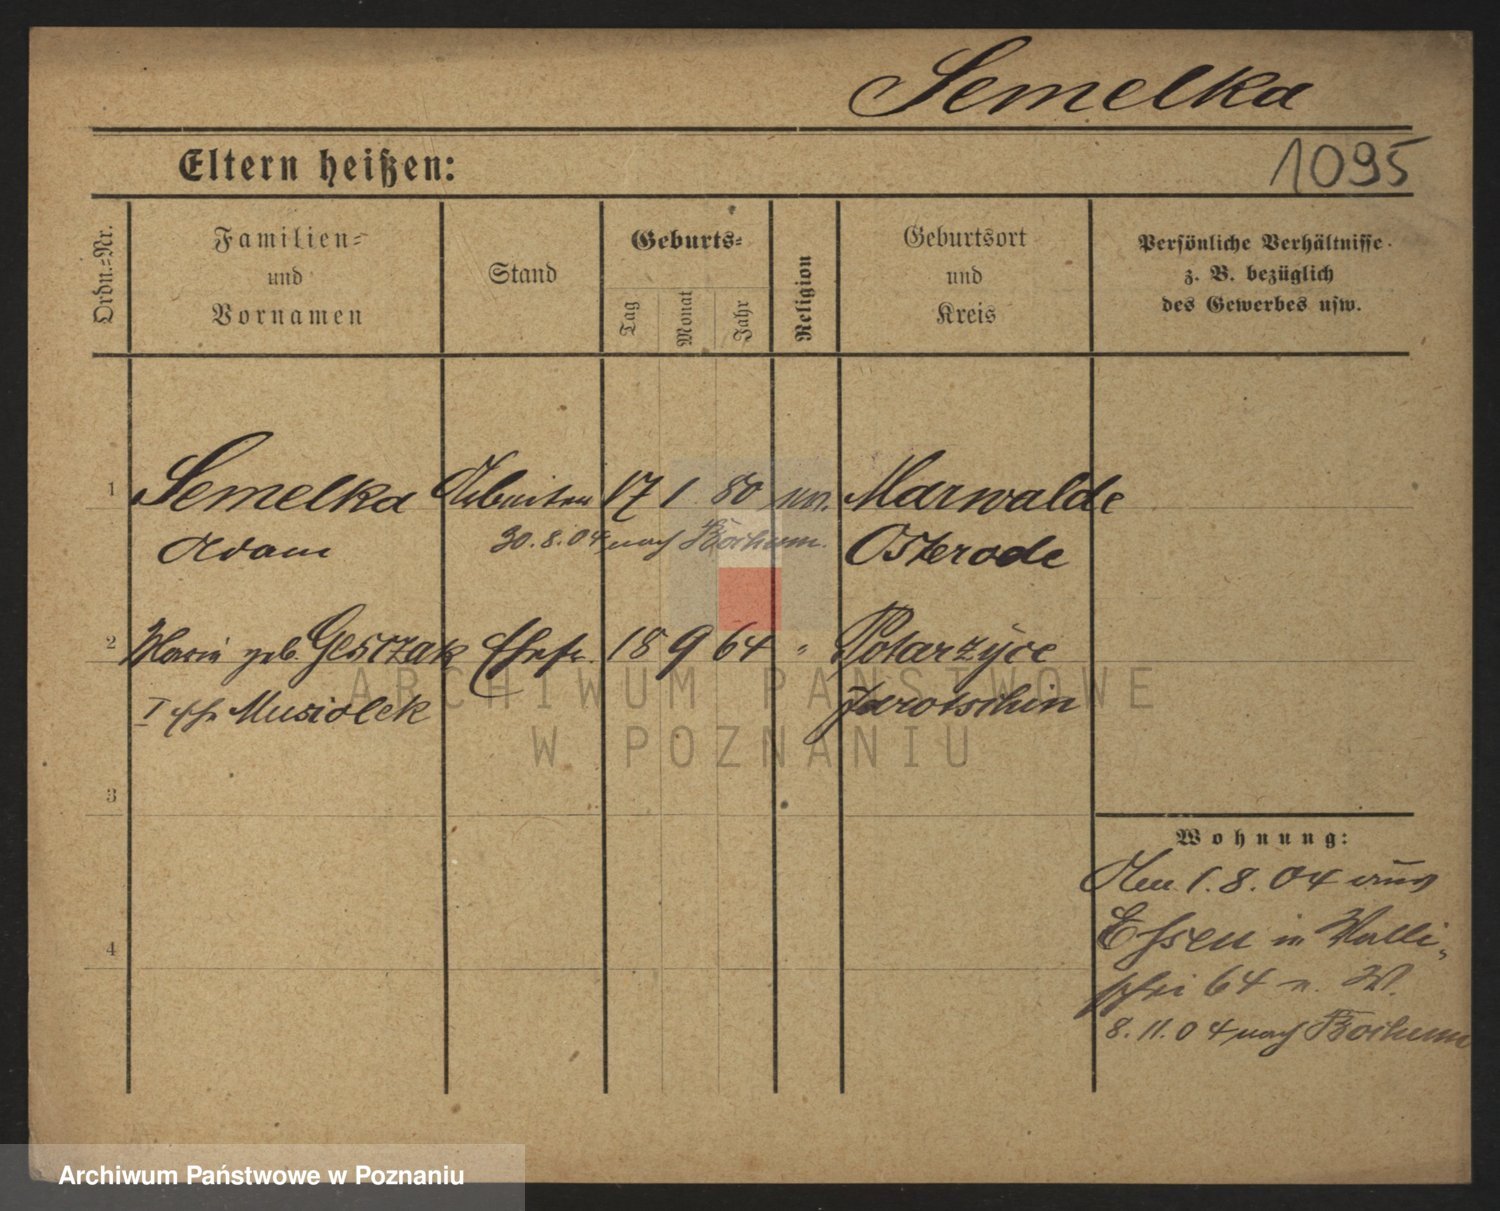 Semelka
Eltern heißen:
1095
Ordn.=Nr.
Familien=
und
Vornamen
Stand
Geburts=
Tag
Monat
Jahr
Religion
Geburtsort
und
Kreis
Persönliche Verhältnisse
z. B. bezüglich
des Gewerbes usw.
1 Semelka Arbeiter 17 1 80 Marwalde
Adam 30.8.04 nach Bochum. Osterode
2 Marie geb. Gesczak Ehefr. 18 9 64 " Potarzyce
I Musiolek Jarotschin
ARCHIWUM PAŃSTWOWE
W POZNANIU
3
Wohnung:
Am 1.8.04 aus
4
Essen in Walli-
schei 64 W.
8.11.04 nach Bochum
Archiwum Państwowe w Poznaniu